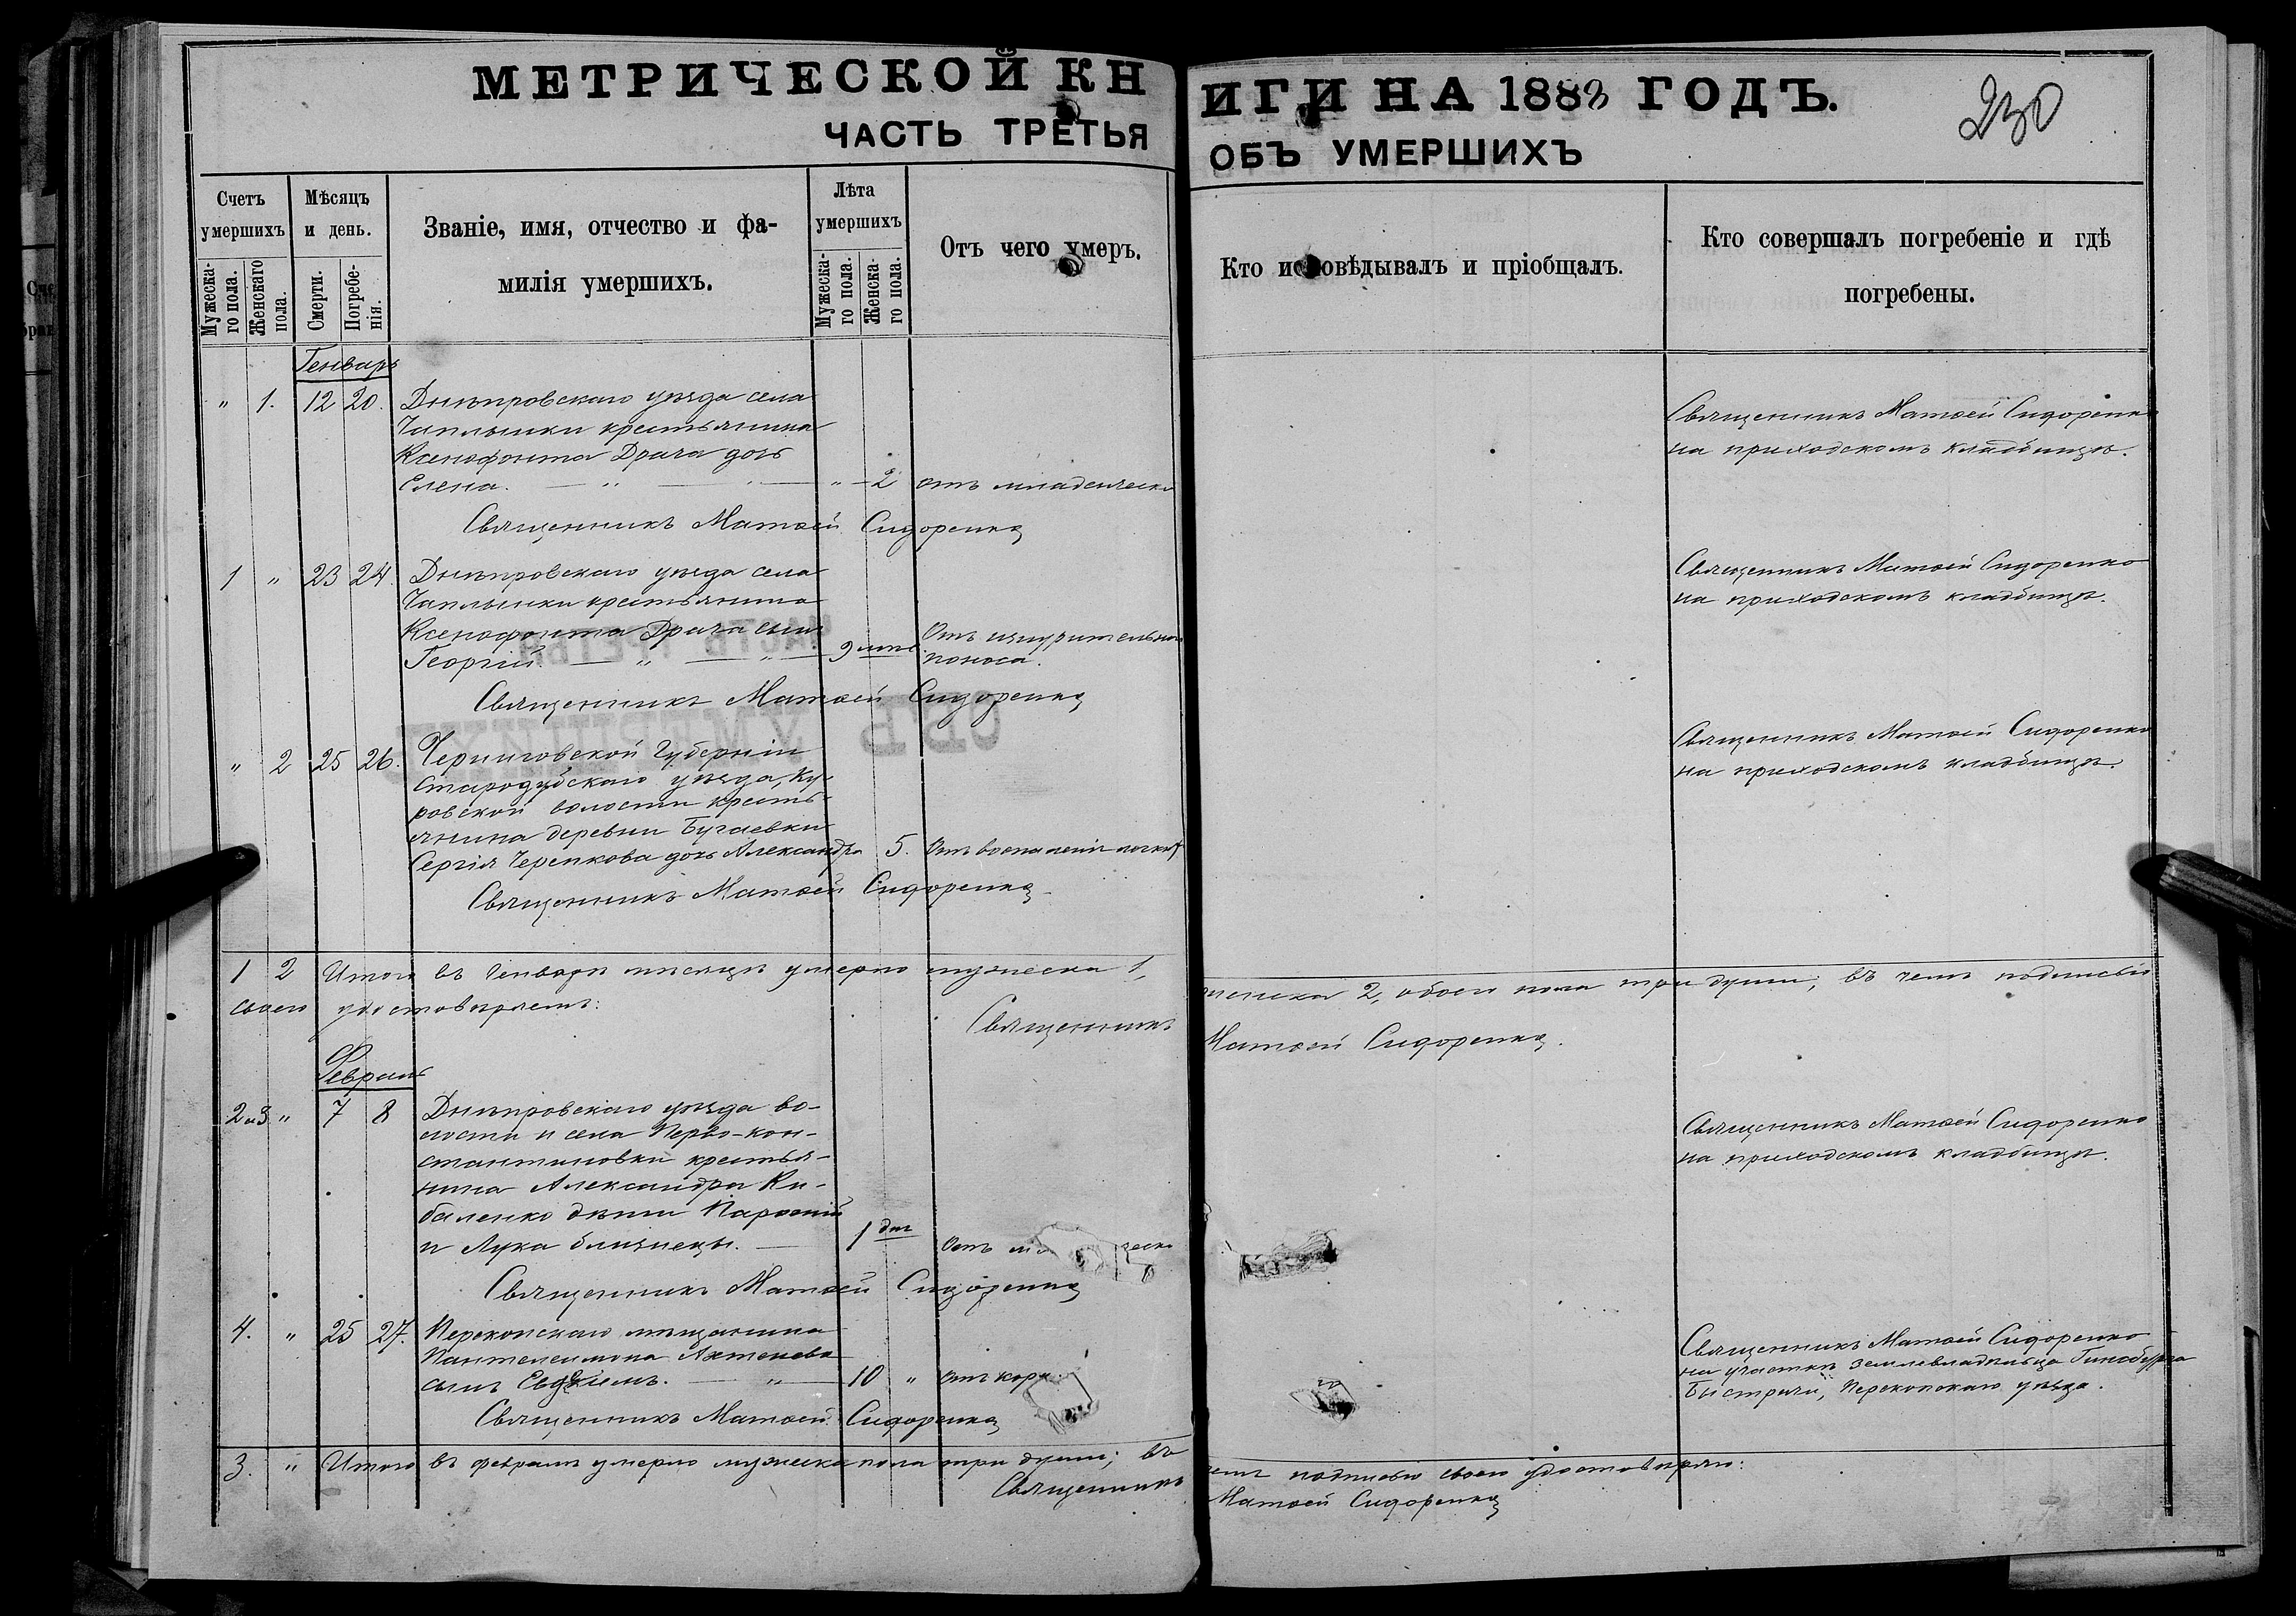 МЕТРИЧЕСКОЙ КНИГИ НА 1888 ГОДЪ.
230
ЧАСТЬ ТРЕТЬЯ ОБЪ УМЕРШИХЪ
Счетъ умершихъ
Мужеска-го пола.
Женскаго пола.
Мѣсяцъ и день.
Смерти.
Погребе-нія.
Званіе, имя, отчество и фа-
милія умершихъ.
Лѣта умершихъ
Мужеска-го пола.
Женска-го пола.
Отъ чего умеръ.
Кто исповѣдывалъ и пріобщалъ.
Кто совершалъ погребеніе и гдѣ
погребены.
Генварь
" 1. 12 20. Днѣпровскаго уѣзда села
Чаплынки крестьянина
Ксенофонта Драча дочь
Елена. — " — " — " — 2 отъ младенческ
Священникъ Матѳей Сидоренко
на приходскомъ кладбищѣ.
Священникъ Матѳей Сидоренко
1 " 23 24. Днѣпровскаго уѣзда села
Чаплынки крестьянина
Ксенофонта Драча сынъ
Георгій. — " — " — 9 лѣтъ Отъ изнурительнаго
поноса.
Священникъ Матѳей Сидоренко
на приходскомъ кладбищѣ.
Священникъ Матѳей Сидоренко
" 2 25 26. Черниговской Губерніи
Стародубскаго уѣзда, Ку-
ровской волости кресть-
янина деревни Бугаевки
Сергія Черепкова дочь Александра 5. Отъ воспаленія легких
Священникъ Матѳей Сидоренко
на приходскомъ кладбищѣ.
Священникъ Матѳей Сидоренко
1 2 Итого въ Генварѣ мѣсяцѣ умерло мужеска 1, женска 2, обоего пола три души; въ чемъ подписью
своею удостовѣряемъ:
Священникъ Матѳей Сидоренко.
Февраль
2 и 3 " 7 8 Днѣпровскаго уѣзда во-
лости и села Перво-кон-
стантиновки крестья-
нина Александра Ки-
баленко дѣти Парѳеній
и Лука близнецы. — 1 дня Отъ
Священникъ Матѳей Сидоренко
на приходскомъ кладбищѣ.
Священникъ Матѳей Сидоренко
4. " 25 27. Перекопскаго мѣщанина
Пантелеимона
сынъ Евѳимъ. — " — 10 " отъ кори
Священникъ Матѳей Сидоренко
на участкѣ землевладѣльца Гинсбурга
Перекопскаго уѣзда.
Священникъ Матѳей Сидоренко
3. " Итого въ февралѣ умерло мужеска пола три души; въ чемъ подписью своею удостовѣряю:
Священникъ Матѳей Сидоренко